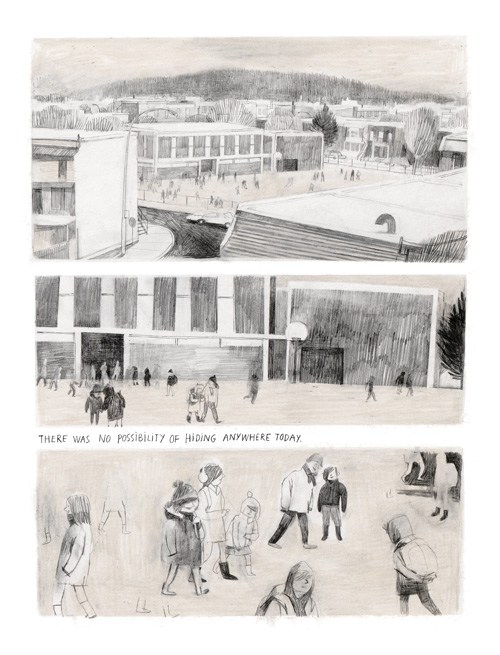 THERE WAS NO POSSIBILITY OF HIDING ANYWHERE TODAY.